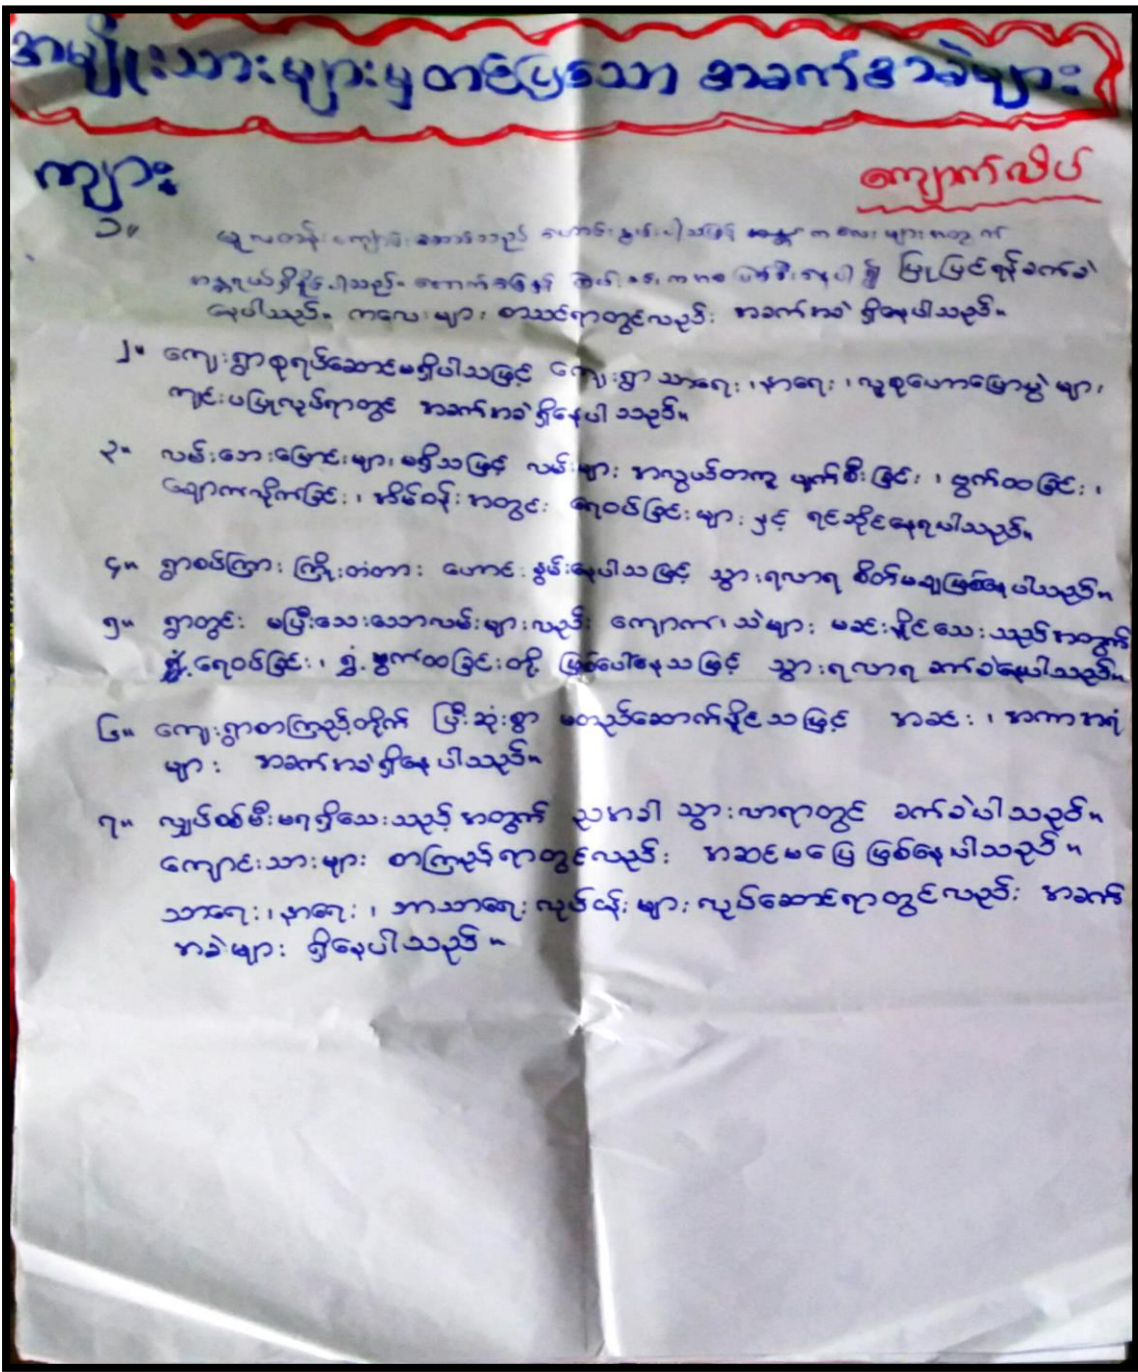 အမျိုးသားများမှတင်ပြသော အခက်အခဲများ
ကျား
ကျောက်လိပ်
၁။ မူလတန်းကျောင်းဆောင်သည် ဟောင်းနွမ်းပါသဖြင့် ကလေးများအတွက်
အန္တရာယ်ရှိနိုင်ပါသည်။ ပြုပြင်ရန်ခက်ခဲ
နေပါသည်။ ကလေးများ စာသင်ရာတွင်လည်း အခက်အခဲ ရှိနေပါသည်။
၂။ ကျေးရွာစုရပ်ဆောင်မရှိပါသဖြင့် ကျေးရွာ သာရေး၊ နာရေး၊ လူစုဟောပြောပွဲ များ
ကျင်းပပြုလုပ်ရာတွင် အခက်အခဲရှိနေပါသည်။
၃။ လမ်းဘေးမြောင်းများ မရှိသဖြင့် လမ်းများ အလွယ်တကူ ပျက်စီးခြင်း၊ ဗွက်ထခြင်း၊
ချောကလိုက်ခြင်း၊ အိမ်ဝန်းအတွင်း ရေဝပ်ခြင်းများ နှင့် ရင်ဆိုင်နေရပါသည်။
၄။ ရွာစပ်ကြား ကြိုးတံတား ဟောင်းနွမ်းနေပါသဖြင့် သွားရလာရ စိတ်မချဖြစ်နေပါသည်။
၅။ ရွာတွင်း မပြီးသေးသောလမ်းများလည်း ကျောက်၊ သဲများ မခင်းနိုင်သေးသည့်အတွက်
ရွှံ့ ရေဝပ်ခြင်း၊ ရွှံ့ ဗွက်ထခြင်းတို့ ဖြစ်ပေါ်နေသဖြင့် သွားရလာရ ခက်ခဲနေပါသည်။
၆။ ကျေးရွာစာကြည့်တိုက် ပြီးဆုံးစွာ မတည်ဆောက်နိုင်သဖြင့် အခင်း၊ အကာအရံ
များ အခက်အခဲရှိနေပါသည်။
၇။ လျှပ်စစ်မီးမရရှိသေးသည့်အတွက် ညအခါ သွားလာရာတွင် ခက်ခဲပါသည်။
ကျောင်းသားများ စာကြည့်ရာတွင်လည်း အဆင်မပြေ ဖြစ်နေပါသည်။
သာရေး၊ နာရေး၊ ဘာသာရေး လုပ်ငန်းများ လုပ်ဆောင်ရာတွင်လည်း အခက်
အခဲများ ရှိနေပါသည်။